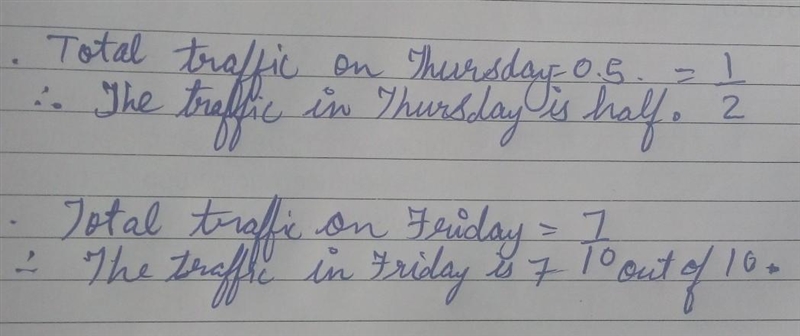 . Total traffic on Thursday = 0.5. = 1/2
∴ The traffic in Thursday is half.
. Total traffic on Friday = 7/10
∴ The traffic in Friday is 7 out of 10.